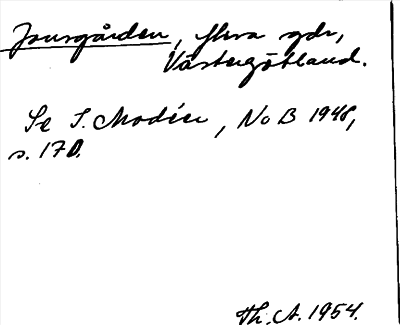 Jonsgården, flera gdr,
Västergötland.
Se I. Modéer, NoB 1948,
s. 170.
Th. A. 1954.